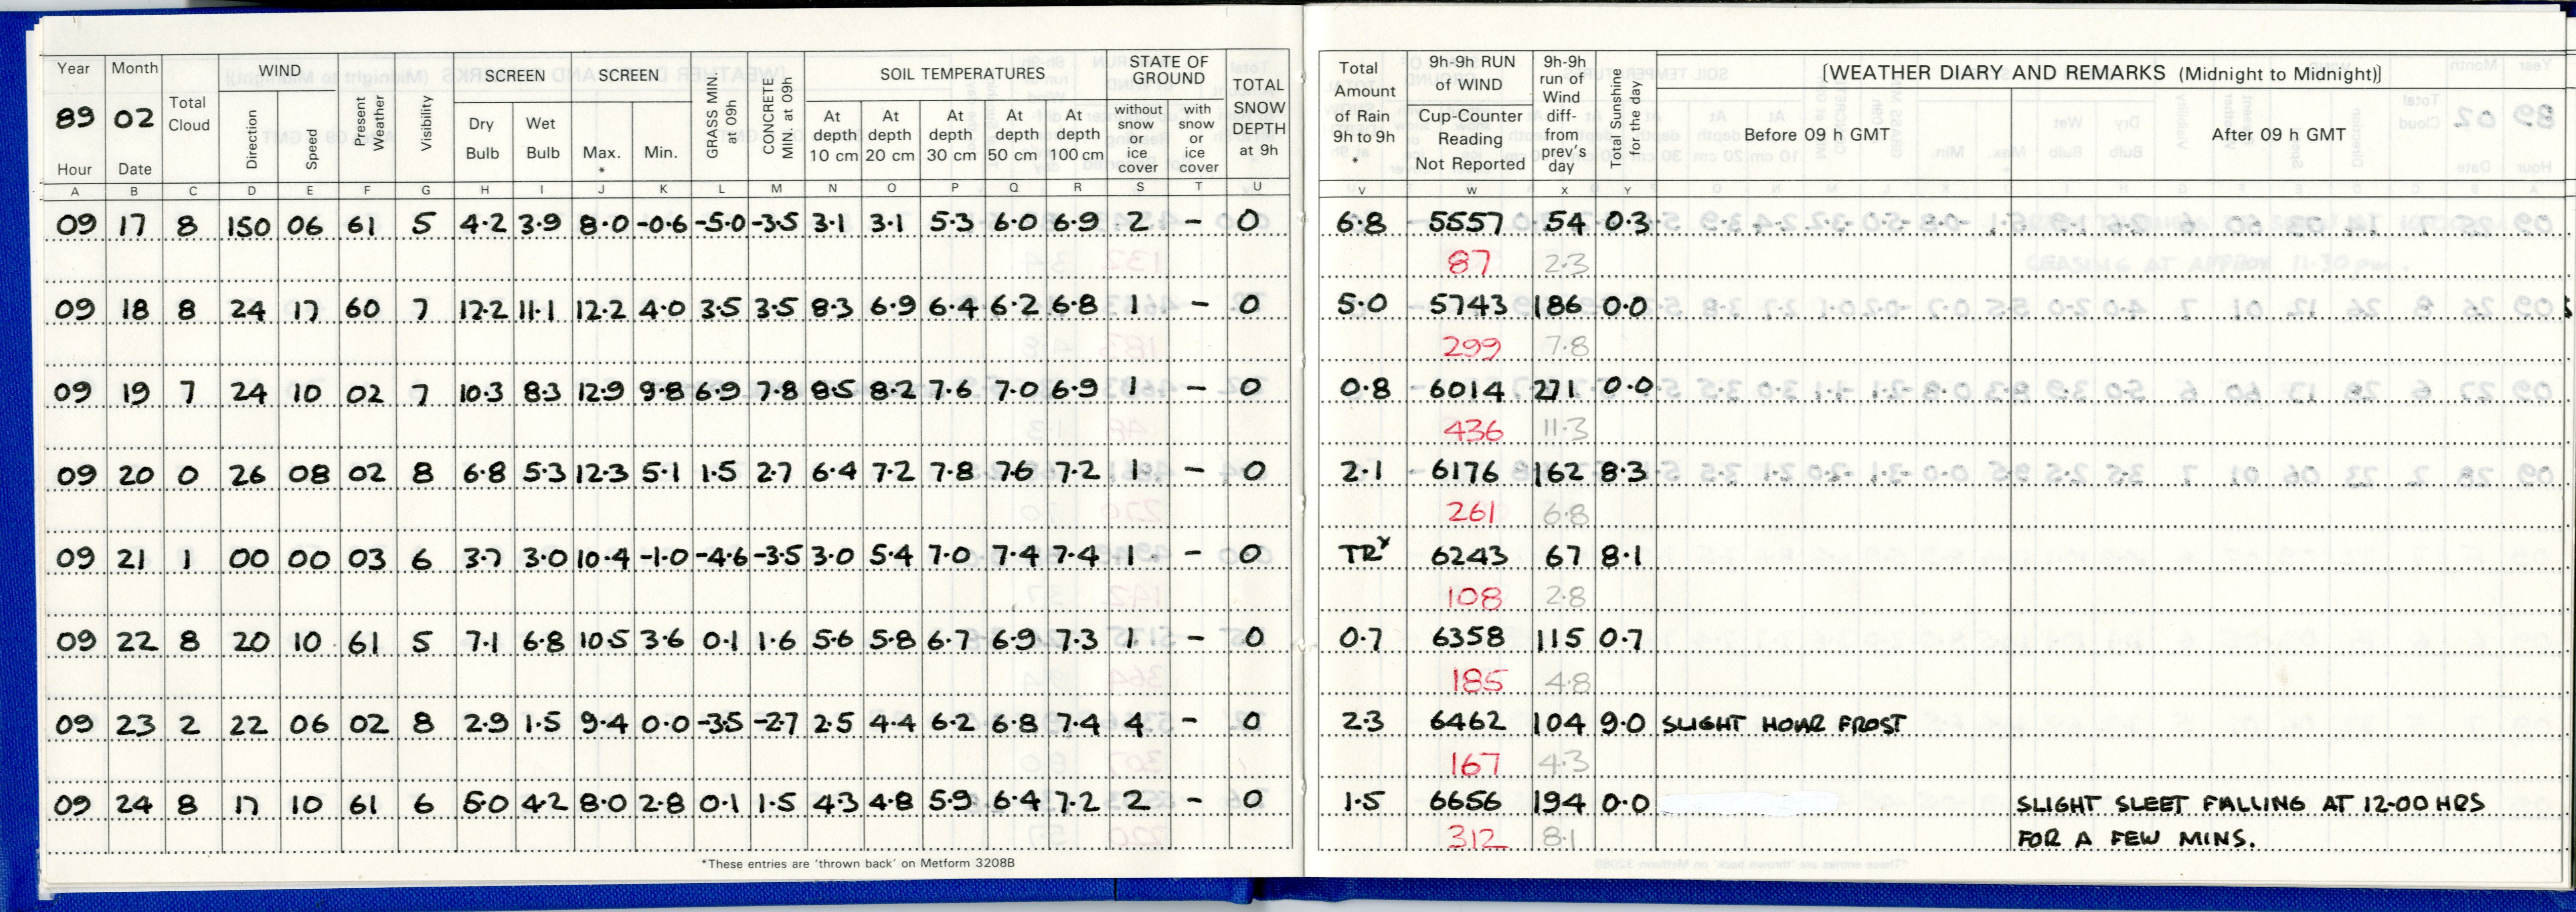 Year Month Total Cloud WIND Present Weather Visibility SCREEN SCREEN GRASS MIN. at 09h CONCRETE MIN. at 09h SOIL TEMPERATURES STATE OF GROUND TOTAL SNOW DEPTH at 9h Total Amount of Rain 9h to 9h * 9h-9h RUN of WIND 9h-9h run of Wind diff- from prev's day Total Sunshine for the day [WEATHER DIARY AND REMARKS (Midnight to Midnight)]
89 02 Direction Speed Dry Bulb Wet Bulb Max. * Min. At depth 10 cm At depth 20 cm At depth 30 cm At depth 50 cm At depth 100 cm without snow or ice cover with snow or ice cover Cup-Counter Reading Not Reported Before 09 h GMT After 09 h GMT
Hour Date
A B C D E F G H I J K L M N O P Q R S T U V W X Y
09 17 8 150 06 61 5 4.2 3.9 8.0 -0.6 -5.0 -3.5 3.1 3.1 5.3 6.0 6.9 2 - 0 6.8 5557 54 0.3
87 2.3
09 18 8 24 17 60 7 12.2 11.1 12.2 4.0 3.5 3.5 8.3 6.9 6.4 6.2 6.8 1 - 0 5.0 5743 186 0.0
299 7.8
09 19 7 24 10 02 7 10.3 8.3 12.9 9.8 6.9 7.8 8.5 8.2 7.6 7.0 6.9 1 - 0 0.8 6014 271 0.0
436 11.3
09 20 0 26 08 02 8 6.8 5.3 12.3 5.1 1.5 2.7 6.4 7.2 7.8 7.6 7.2 1 - 0 2.1 6176 162 8.3
261 6.8
09 21 1 00 00 03 6 3.7 3.0 10.4 -1.0 -4.6 -3.5 3.0 5.4 7.0 7.4 7.4 1 - 0 TR 6243 67 8.1
108 2.8
09 22 8 20 10 61 5 7.1 6.8 10.5 3.6 0.1 1.6 5.6 5.8 6.7 6.9 7.3 1 - 0 0.7 6358 115 0.7
185 4.8
09 23 2 22 06 02 8 2.9 1.5 9.4 0.0 -3.5 -2.7 2.5 4.4 6.2 6.8 7.4 4 - 0 2.3 6462 104 9.0 SLIGHT HOAR FROST
167 4.3
09 24 8 17 10 61 6 5.0 4.2 8.0 2.8 0.1 1.5 4.3 4.8 5.9 6.4 7.2 2 - 0 1.5 6656 194 0.0 SLIGHT SLEET FALLING AT 12-00 HRS
312 8.1 FOR A FEW MINS.
*These entries are 'thrown back' on Metform 3208B